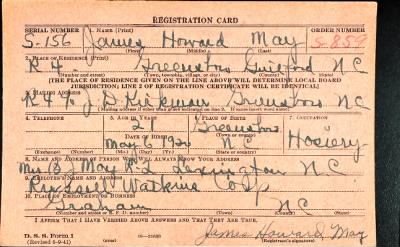 REGISTRATION CARD
SERIAL NUMBER 1. NAME (Print) ORDER NUMBER
S-156 James Howard May S-859
(First) (Middle) (Last)
2. PLACE OF RESIDENCE (Print)
R 4 Greensboro Guilford N C
(Number and street) (Town, township, village, or city) (County) (State)
[THE PLACE OF RESIDENCE GIVEN ON THE LINE ABOVE WILL DETERMINE LOCAL BOARD
JURISDICTION; LINE 2 OF REGISTRATION CERTIFICATE WILL BE IDENTICAL]
3. MAILING ADDRESS
R 4 % J D Kirkman Greensboro N C
4. TELEPHONE 5. AGE IN YEARS 6. PLACE OF BIRTH 7. OCCUPATION
21 Greensboro
DATE OF BIRTH
May 6 1920 N C Hosiery
(Exchange) (Number) (Mo.) (Day) (Yr.) (State or country)
8. NAME AND ADDRESS OF PERSON WHO WILL ALWAYS KNOW YOUR ADDRESS
Mrs B May R 2 Lexington N C
9. EMPLOYER'S NAME AND ADDRESS
Watkins
10. PLACE OF EMPLOYMENT OR BUSINESS
Graham N C
(Number and street or R. F. D. number) (Town) (County) (State)
I AFFIRM THAT I HAVE VERIFIED ABOVE ANSWERS AND THAT THEY ARE TRUE.
D. S. S. Form 1
(Revised 6-9-41) James Howard May
(Registrant's signature)